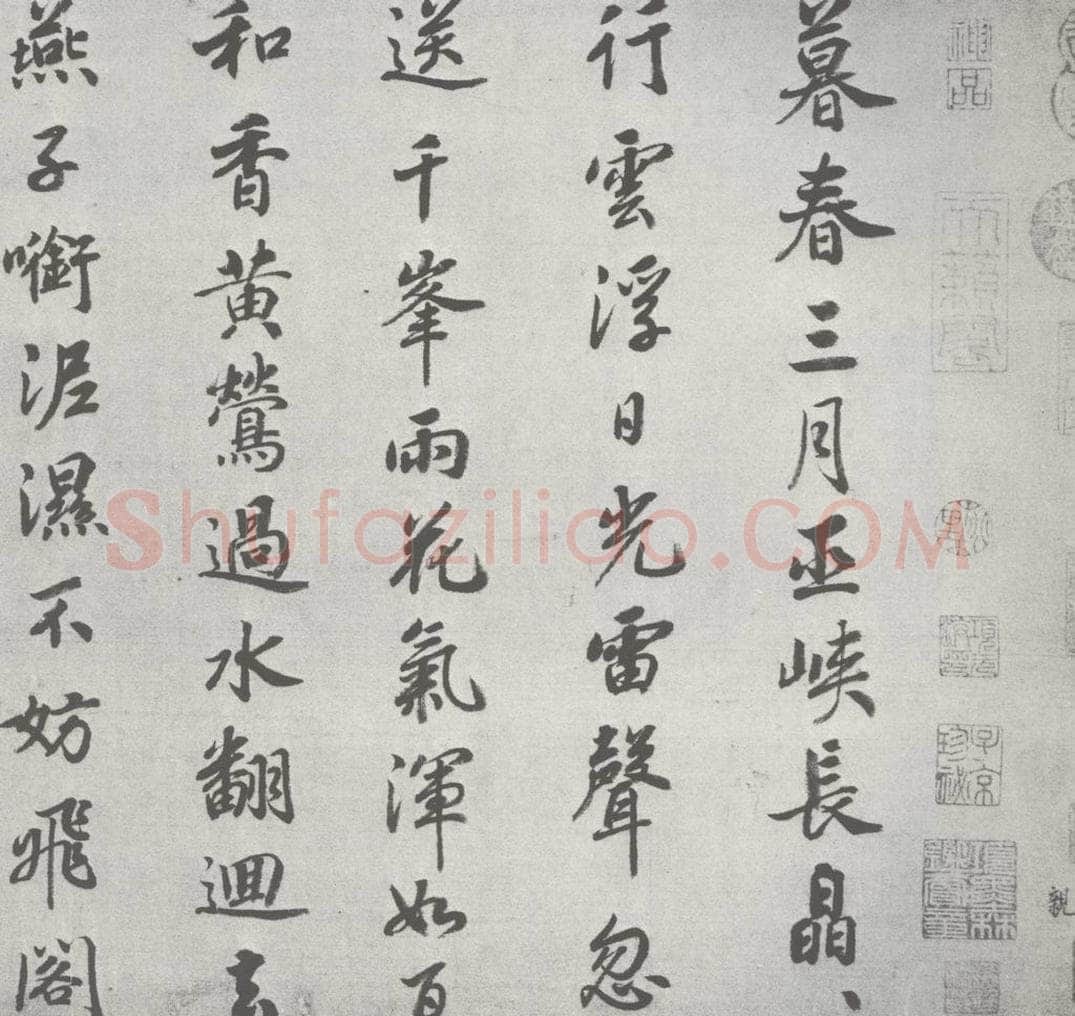 暮春三月巫峽長晶、
行雲浮日光雷聲忽
送千峯雨花氣渾如百
和香黃鶯過水翻迴去
燕子啣泥濕不妨飛閣
神品
項元汴印
子京珍秘
Shufaziliao.COM